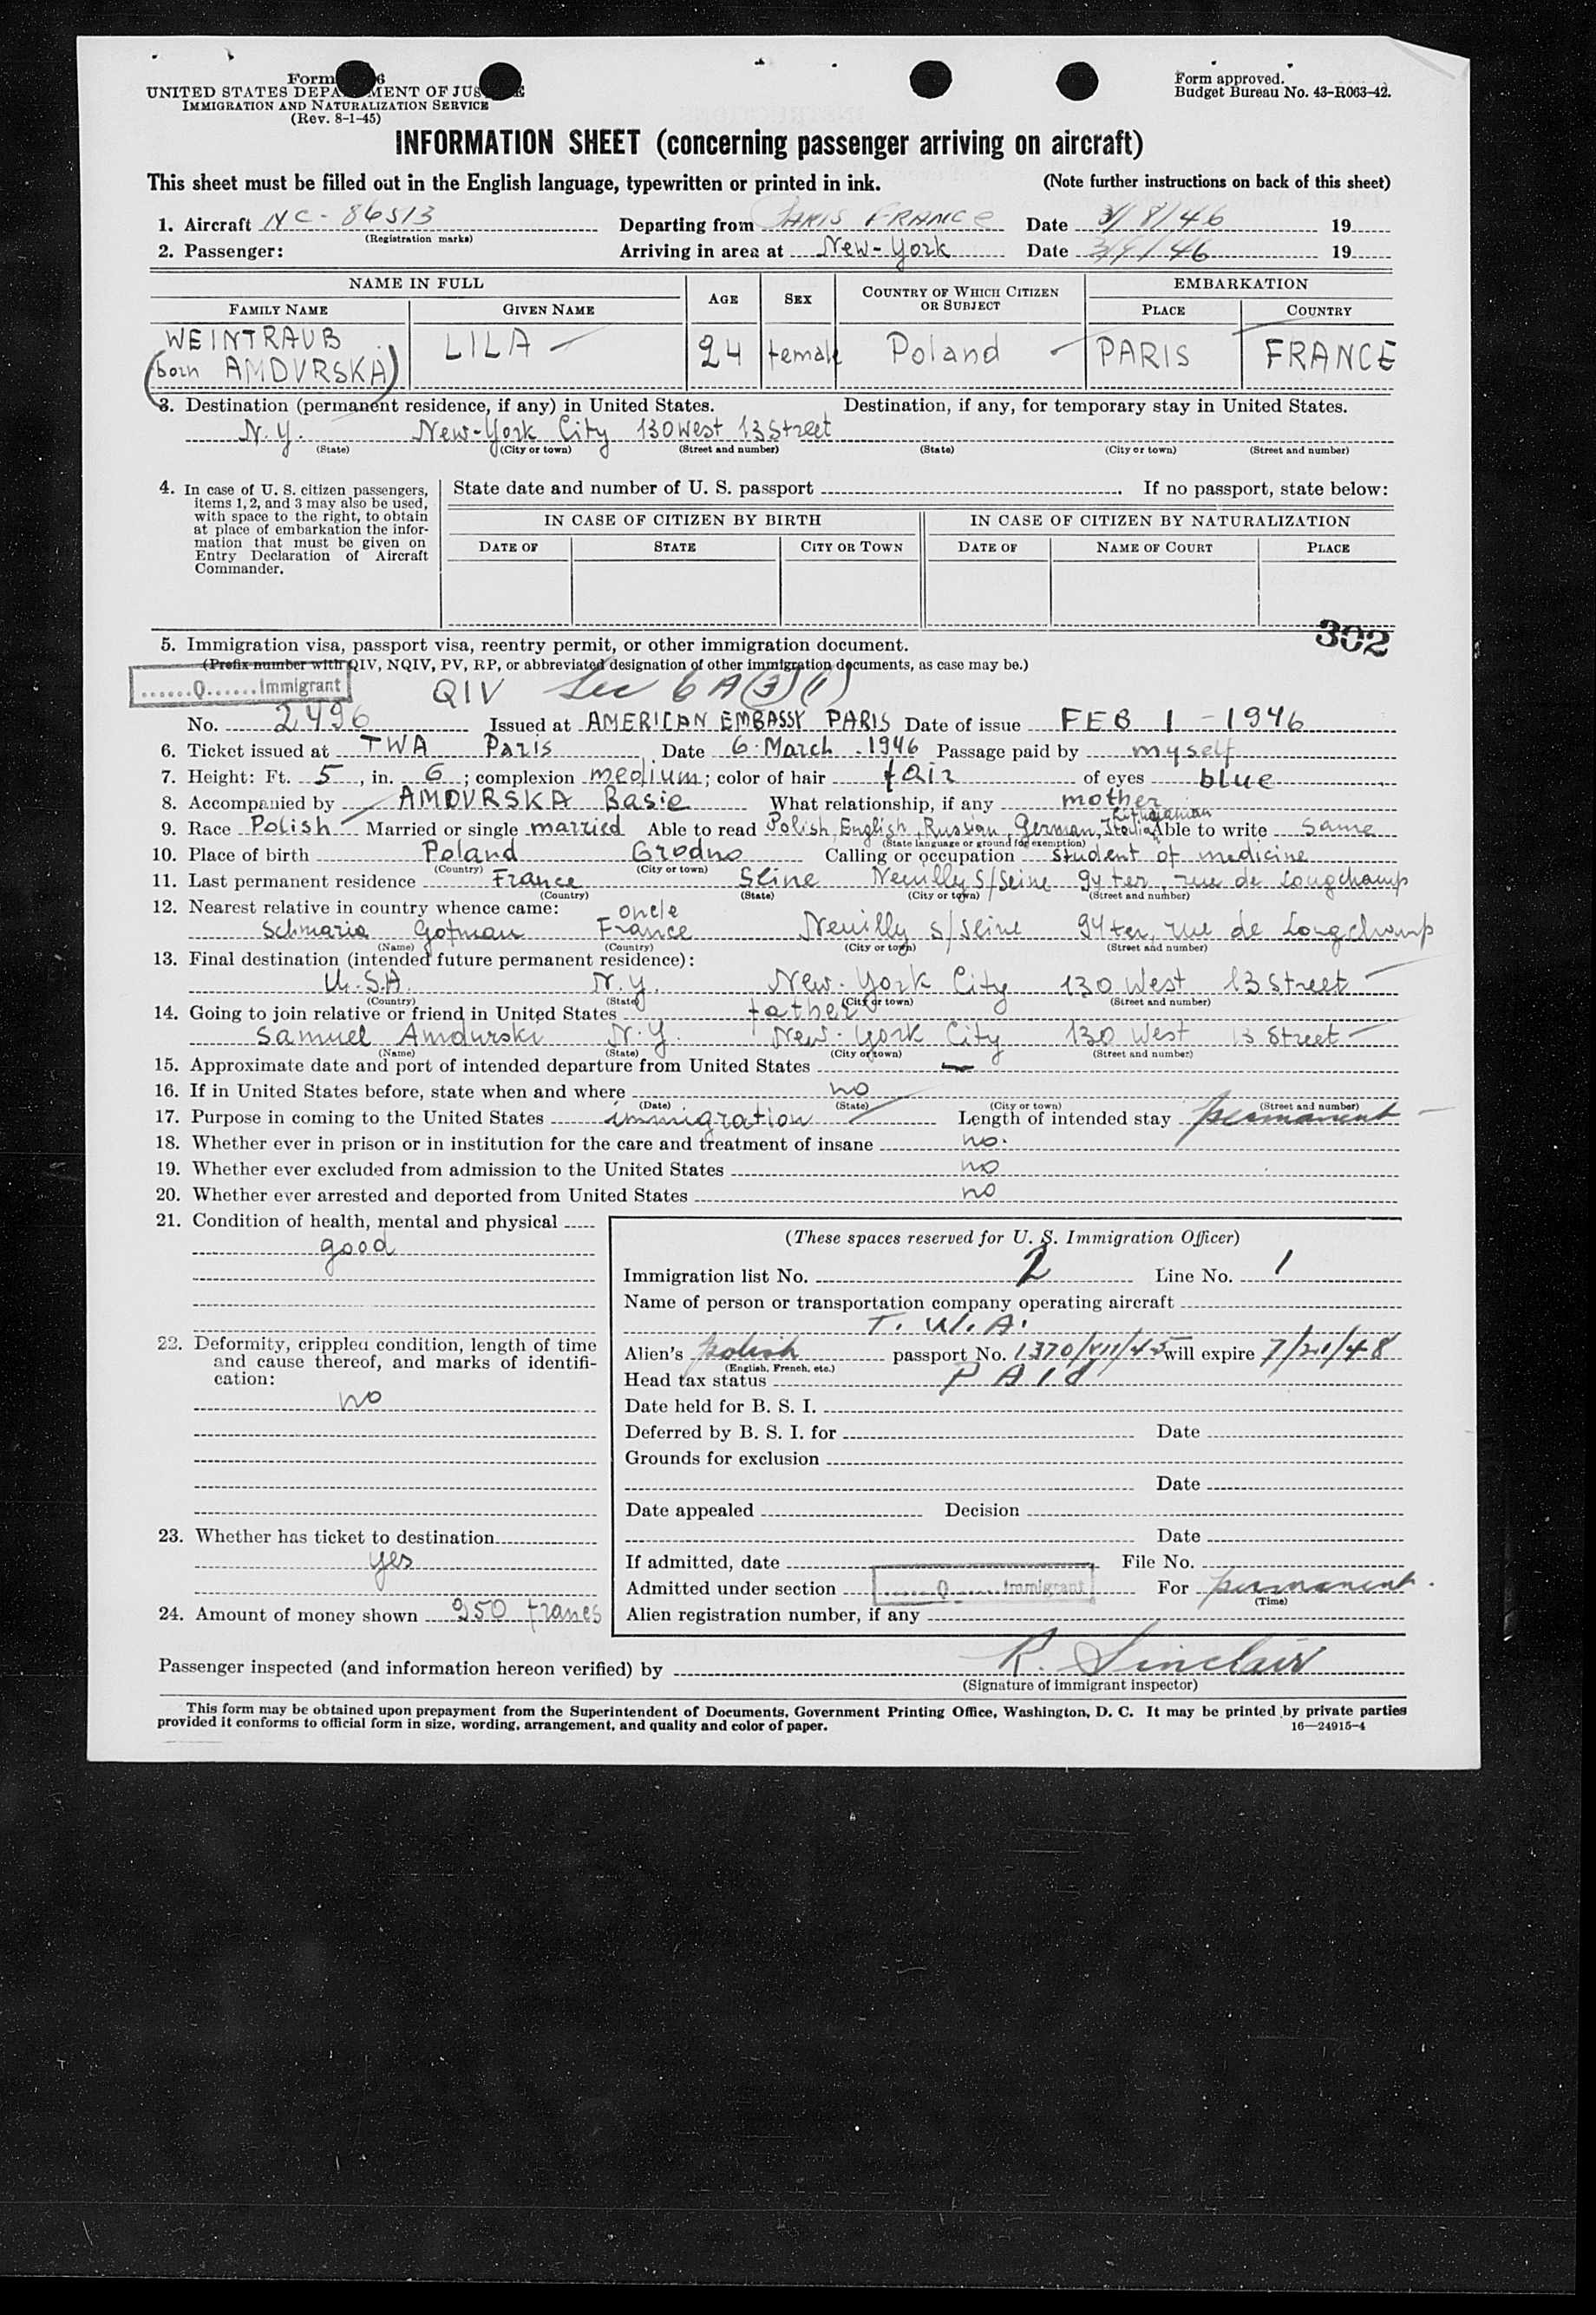 Form 6
UNITED STATES DEPA MENT OF JUS E
IMMIGRATION AND NATURALIZATION SERVICE
(Rev. 8-1-45)
Form approved.
Budget Bureau No. 43-R063-42.
INFORMATION SHEET (concerning passenger arriving on aircraft)
This sheet must be filled out in the English language, typewritten or printed in ink. (Note further instructions on back of this sheet)
1. Aircraft NC-86513 Departing from PARIS FRANCE Date 3/8/46 19
(Registration marks)
2. Passenger: Arriving in area at New-York Date 3/9/46 19
NAME IN FULL AGE SEX COUNTRY OF WHICH CITIZEN OR SUBJECT EMBARKATION
FAMILY NAME GIVEN NAME PLACE COUNTRY
WEINTRAUB LILA 24 female Poland PARIS FRANCE
(born AMDURSKA)
3. Destination (permanent residence, if any) in United States. Destination, if any, for temporary stay in United States.
N.Y. New-York City 130 West 13 Street
(State) (City or town) (Street and number) (State) (City or town) (Street and number)
4. In case of U. S. citizen passengers, items 1, 2, and 3 may also be used, with space to the right, to obtain at place of embarkation the information that must be given on Entry Declaration of Aircraft Commander.
State date and number of U. S. passport . If no passport, state below:
IN CASE OF CITIZEN BY BIRTH IN CASE OF CITIZEN BY NATURALIZATION
DATE OF STATE CITY OR TOWN DATE OF NAME OF COURT PLACE
302
5. Immigration visa, passport visa, reentry permit, or other immigration document.
(Prefix number with QIV, NQIV, PV, RP, or abbreviated designation of other immigration documents, as case may be.)
Q Immigrant QIV Sec 6 A (3) (1)
No. 2496 Issued at AMERICAN EMBASSY PARIS Date of issue FEB 1 - 1946
6. Ticket issued at TWA Paris Date 6 March 1946 Passage paid by myself
7. Height: Ft. 5, in. 6; complexion medium; color of hair fair of eyes blue
8. Accompanied by AMDURSKA Basie What relationship, if any mother
9. Race Polish Married or single married Able to read Polish, English, Russian, German, Italian Lithuanian Able to write same
(State language or ground for exemption)
10. Place of birth Poland Grodno Calling or occupation student of medicine
(Country) (City or town)
11. Last permanent residence France Seine Neuilly s/Seine 94 ter, rue de Longchamp
(Country) (State) (City or town) (Street and number)
12. Nearest relative in country whence came: oncle
Schmaria Gofman France Neuilly s/Seine 94 ter, rue de Longchamp
(Name) (Country) (City or town) (Street and number)
13. Final destination (intended future permanent residence):
U.S.A. N.Y. New-York City 130 West 13 Street
(Country) (State) (City or town) (Street and number)
14. Going to join relative or friend in United States father
Samuel Amdurski N.Y. New-York City 130 West 13 Street
(Name) (State) (City or town) (Street and number)
15. Approximate date and port of intended departure from United States —
16. If in United States before, state when and where no
(Date) (State) (City or town) (Street and number)
17. Purpose in coming to the United States immigration Length of intended stay permanent
18. Whether ever in prison or in institution for the care and treatment of insane no.
19. Whether ever excluded from admission to the United States no
20. Whether ever arrested and deported from United States no
21. Condition of health, mental and physical
good
22. Deformity, crippled condition, length of time and cause thereof, and marks of identification:
no
23. Whether has ticket to destination
yes
24. Amount of money shown 950 francs
(These spaces reserved for U. S. Immigration Officer)
Immigration list No. 2 Line No. 1
Name of person or transportation company operating aircraft
T. W. A.
Alien's polish passport No. 1370/VII/45 will expire 7/21/48
(English, French, etc.)
Head tax status PAId
Date held for B. S. I.
Deferred by B. S. I. for Date
Grounds for exclusion
Date
Date appealed Decision
Date
If admitted, date File No.
Admitted under section Q Immigrant For permanent.
(Time)
Alien registration number, if any
Passenger inspected (and information hereon verified) by R. Sinclair
(Signature of immigrant inspector)
This form may be obtained upon prepayment from the Superintendent of Documents, Government Printing Office, Washington, D. C. It may be printed by private parties
provided it conforms to official form in size, wording, arrangement, and quality and color of paper. 16—24915-4